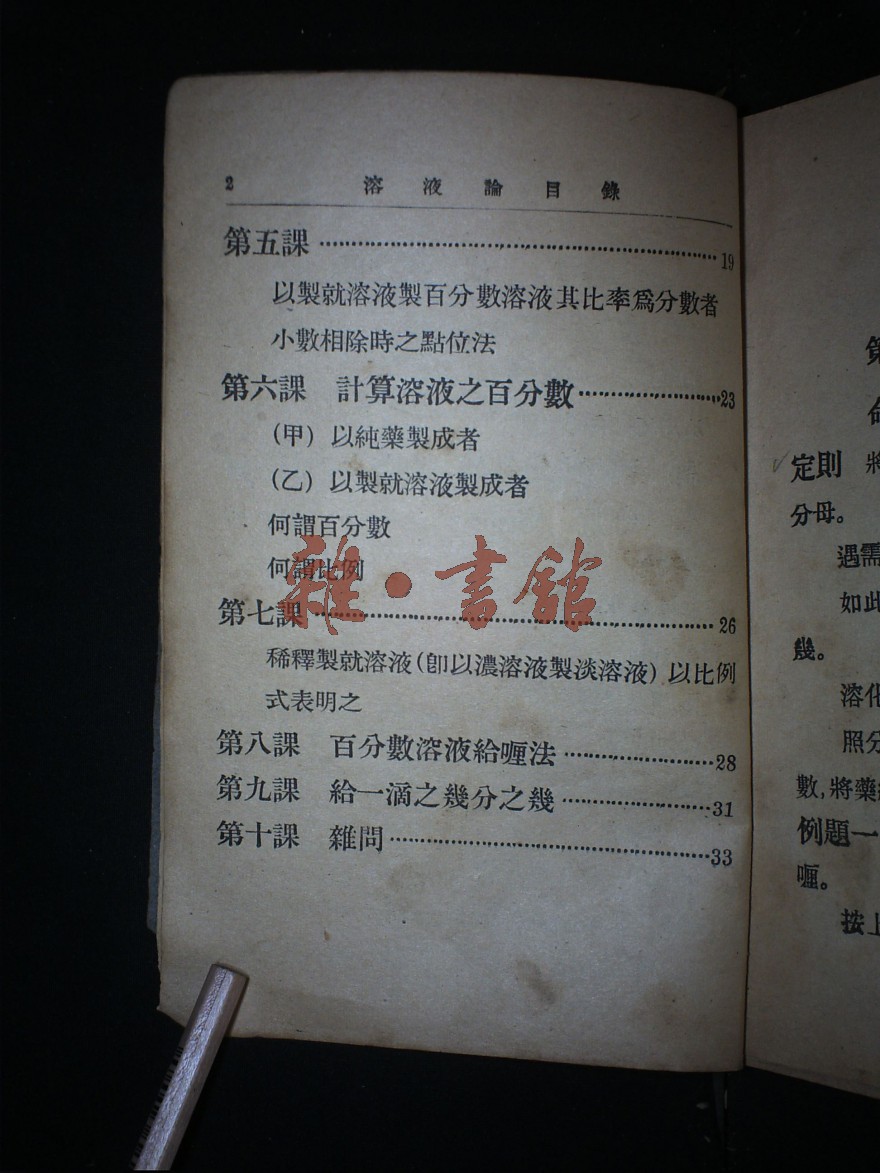 2 溶液論目錄
第五課 ………………………………………… 19
以製就溶液製百分數溶液其比率爲分數者
小數相除時之點位法
第六課 計算溶液之百分數………………23
(甲) 以純藥製成者
(乙) 以製就溶液製成者
何謂百分數
何謂比例
第七課 ………………………………………… 26
稀釋製就溶液(卽以濃溶液製淡溶液) 以比例
式表明之
第八課 百分數溶液給喱法………………28
第九課 給一滴之幾分之幾………………31
第十課 雜問………………………………33
雜·書館
定則
分母。
遇需
如此
幾。
溶化
照分
數,將藥
例題一
喱。
按上